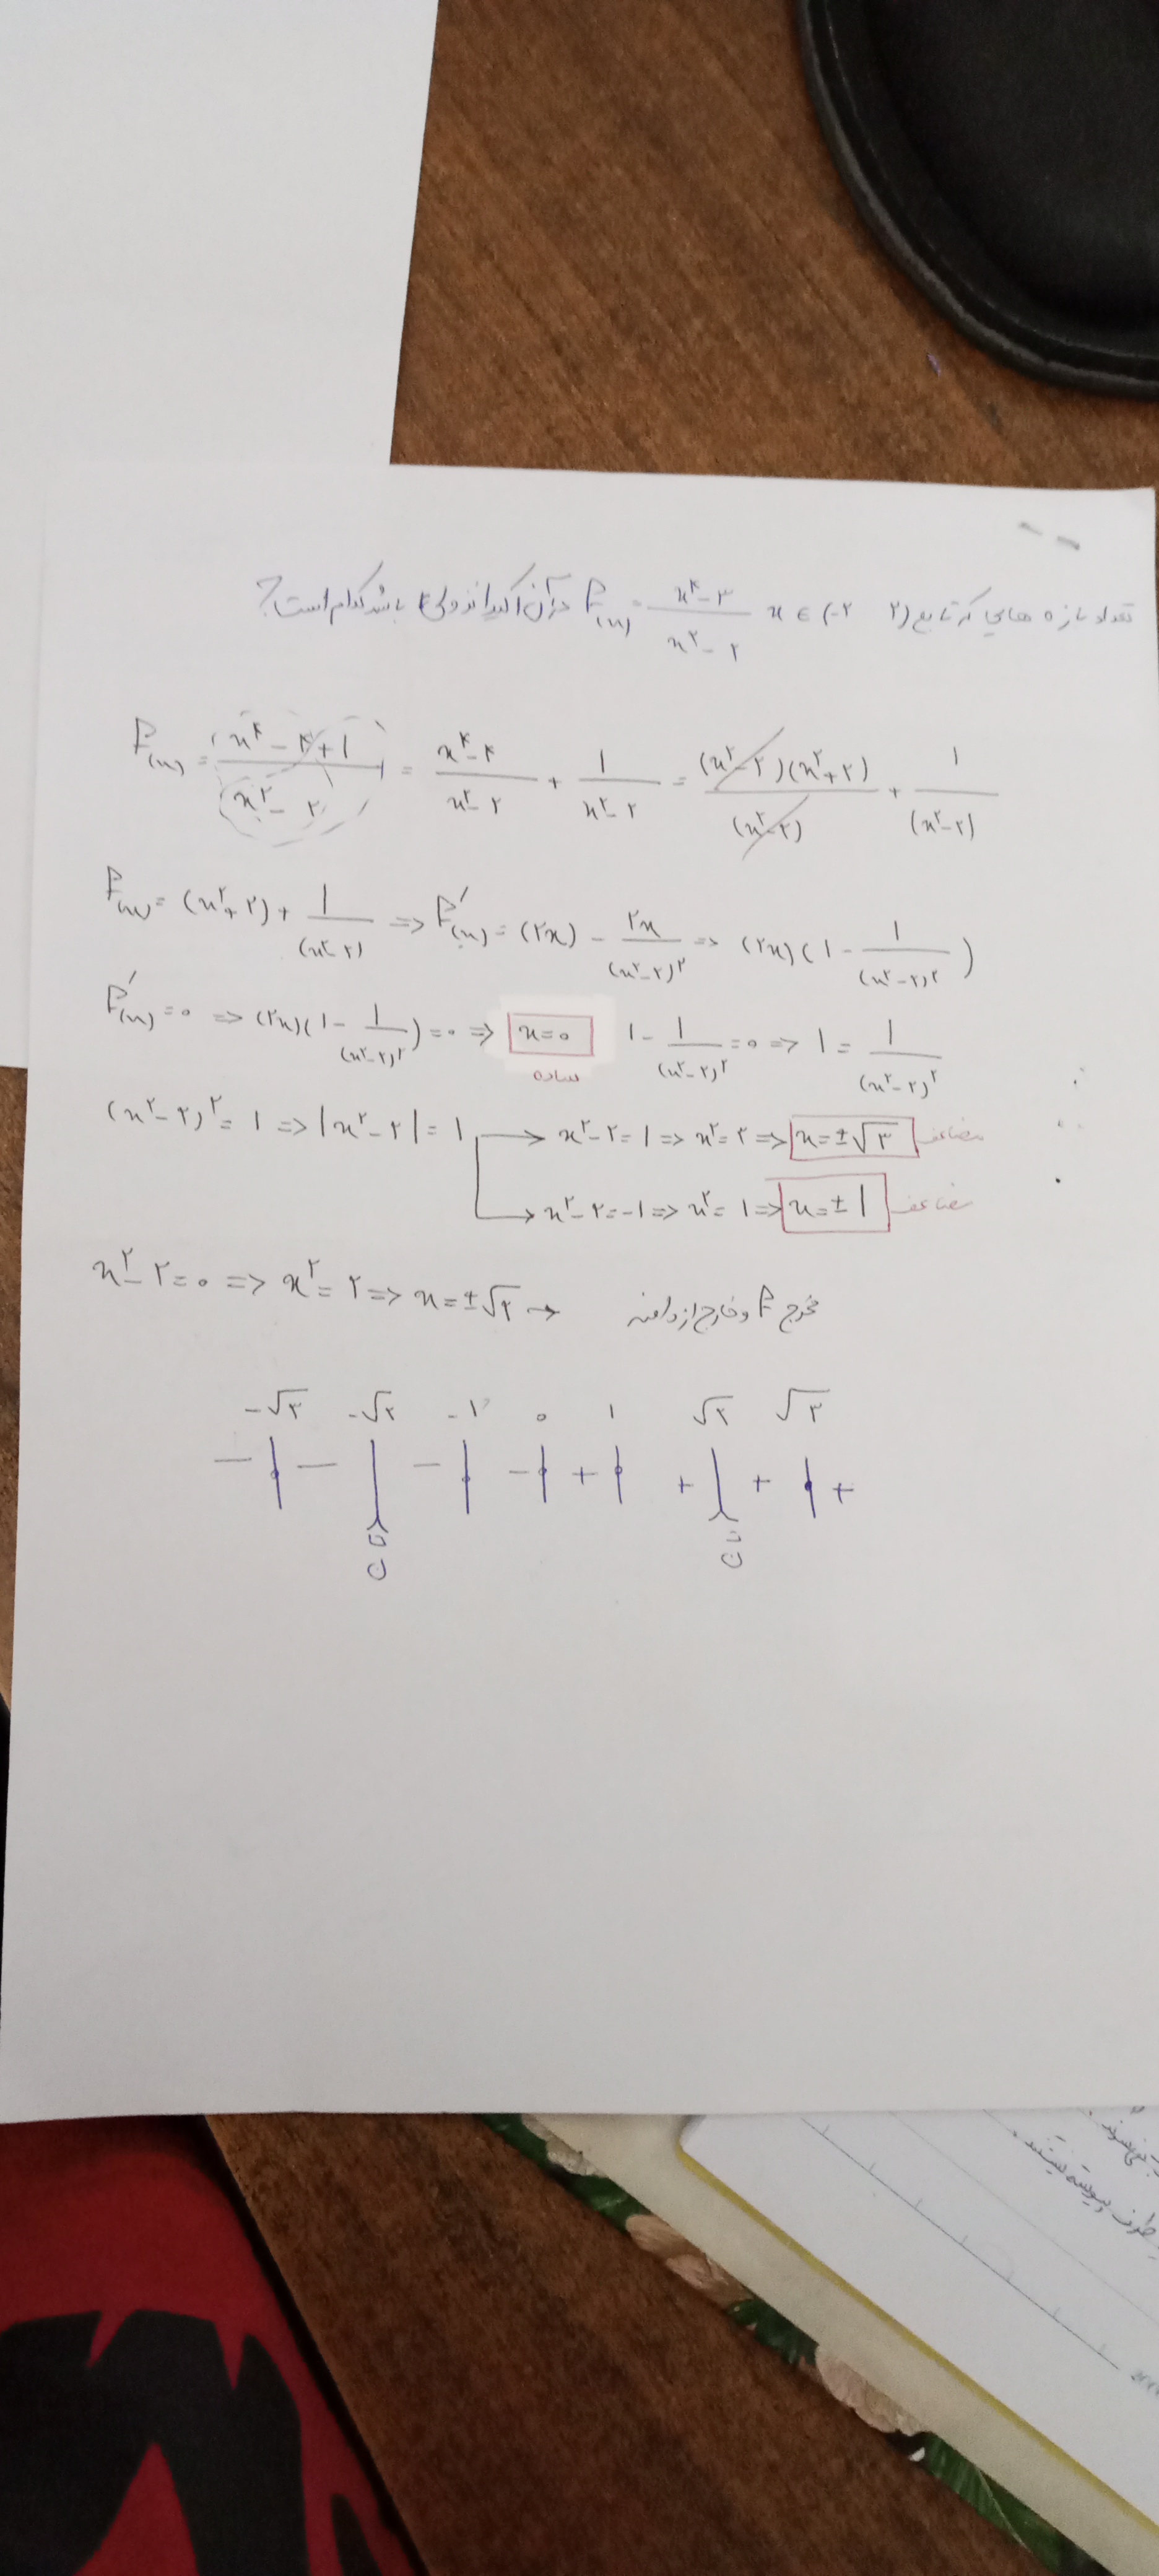 تعداد بازه هایی که تابع F(x) = (x⁴ - ۳)/(x² - ۲) x ∈ (-۲ ۲) در آن اکیدا نزولی باشد کدام است؟
F(x) = (x⁴ - ۴ + ۱)/(x² - ۲) = (x⁴ - ۴)/(x² - ۲) + ۱/(x² - ۲) = (x² - ۲)(x² + ۲)/(x² - ۲) + ۱/(x² - ۲)
F(x) = (x² + ۲) + ۱/(x² - ۲) => F′(x) = (۲x) - ۲x/(x² - ۲)² => (۲x)(۱ - ۱/(x² - ۲)²)
F′(x) = ۰ => (۲x)(۱ - ۱/(x² - ۲)²) = ۰ => x = ۰ ۱ - ۱/(x² - ۲)² = ۰ => ۱ = ۱/(x² - ۲)²
ساده
(x² - ۲)² = ۱ => |x² - ۲| = ۱ → x² - ۲ = ۱ => x² = ۳ => x = ±√۳ مضاعف
→ x² - ۲ = -۱ => x² = ۱ => x = ±۱ مضاعف
x² - ۲ = ۰ => x² = ۲ => x = ±√۲ → مخرج F و خارج از دامنه
-√۳ -√۲ -۱ ۰ ۱ √۲ √۳
- - - - + + + +
ت ن ت ن